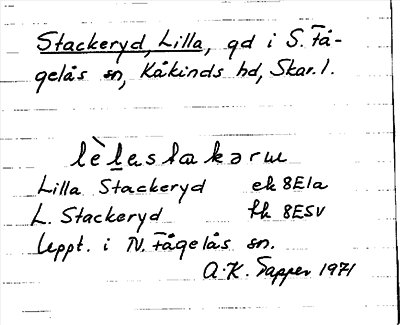 Stackeryd, Lilla, gd i S. Få-
gelås sn, Kåkinds hd, Skar. l.
lèlastakəru
Lilla Stackeryd ek 8E1a
L. Stackeryd fk 8E5v
Uppt. i N. Fågelås sn.
A.K. Tapper 1971